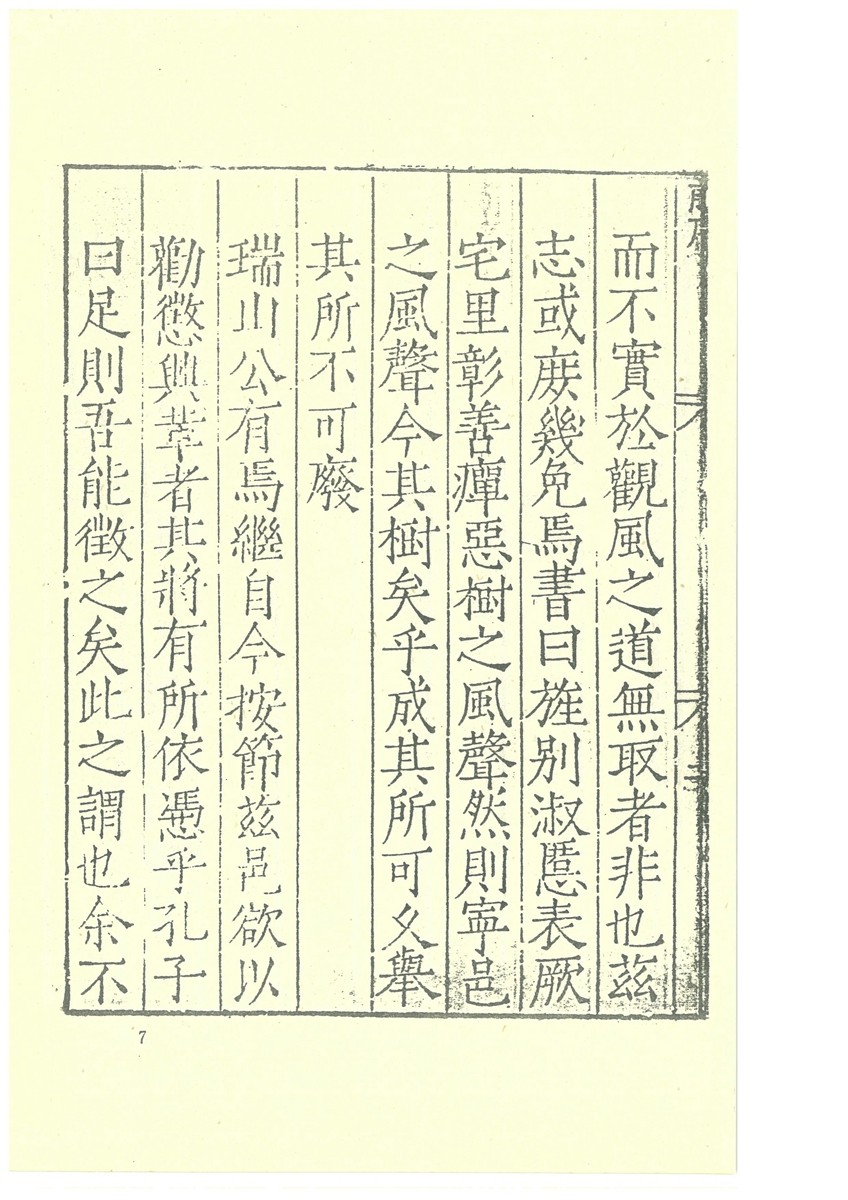 前序
而不實於觀風之道無取者非也茲
志或庻幾免焉書曰旌别淑慝表厥
宅里彰善癉惡樹之風聲然則寧邑
之風聲今其樹矣乎成其所可久舉
其所不可廢
瑞山公有焉繼自今按節茲邑欲以
勸懲興革者其將有所依憑乎孔子
曰足則吾能徵之矣此之謂也余不
7